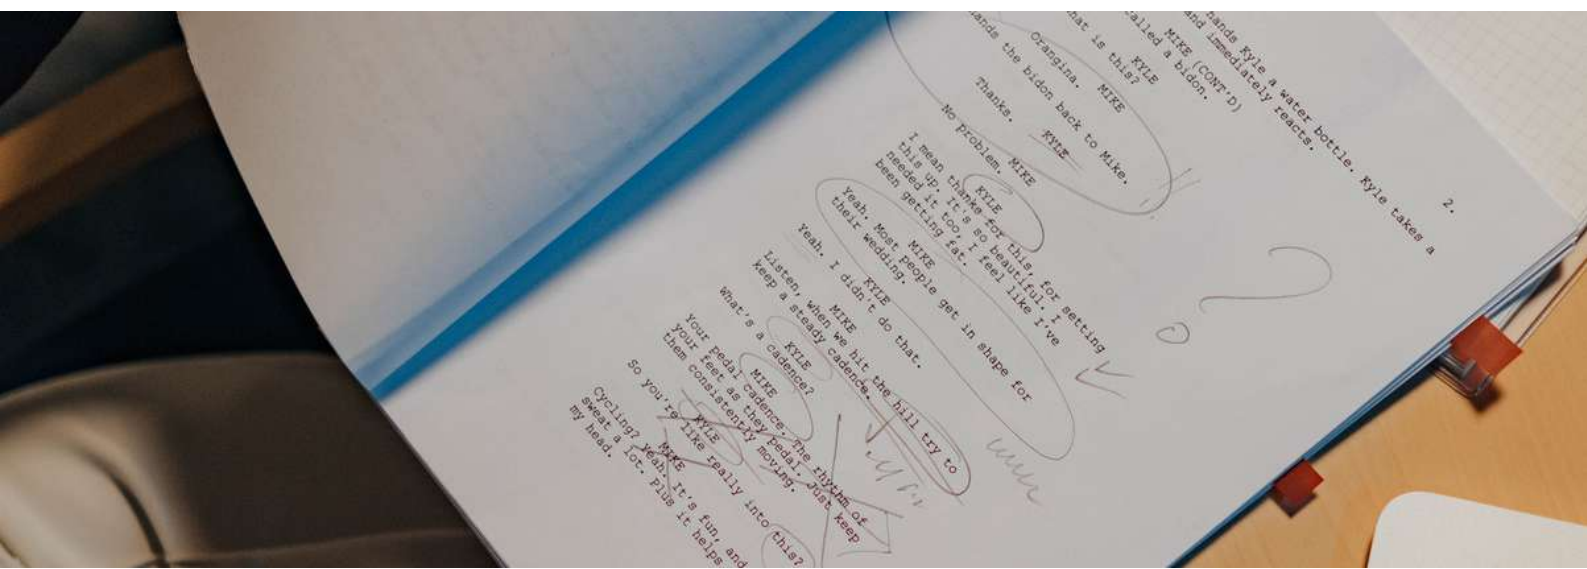 2.
hands Kyle a water bottle. Kyle takes a
and immediately reacts.
MIKE (CONT'D)
called a bidon.
KYLE
hat is this?
MIKE
Orangina.
ands the bidon back to Mike.
KYLE
Thanks.
MIKE
No problem.
KYLE
I mean thanks for this, for setting
this up. It's so beautiful. I
needed it too, I feel like I've
been getting fat.
MIKE
Yeah. Most people get in shape for
their wedding.
KYLE
Yeah. I didn't do that.
MIKE
Listen, when we hit the hill try to
keep a steady cadence.
KYLE
What's a cadence?
MIKE
Your pedal cadence. The rhythm of
your feet as they pedal. Just keep
them consistently moving.
KYLE
So you're like really into this?
MIKE
Cycling? Yeah. It's fun, and
sweat a lot. Plus it helps
my head.
?